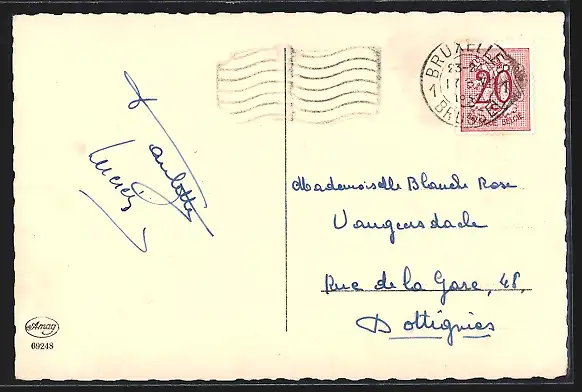 BRUXELLES
1
BRUSSEL
20
Mademoiselle Blanche Rose
Vangeersdaele
Rue de la Gare, 48,
Dottignies
Lucien
Amag
69248